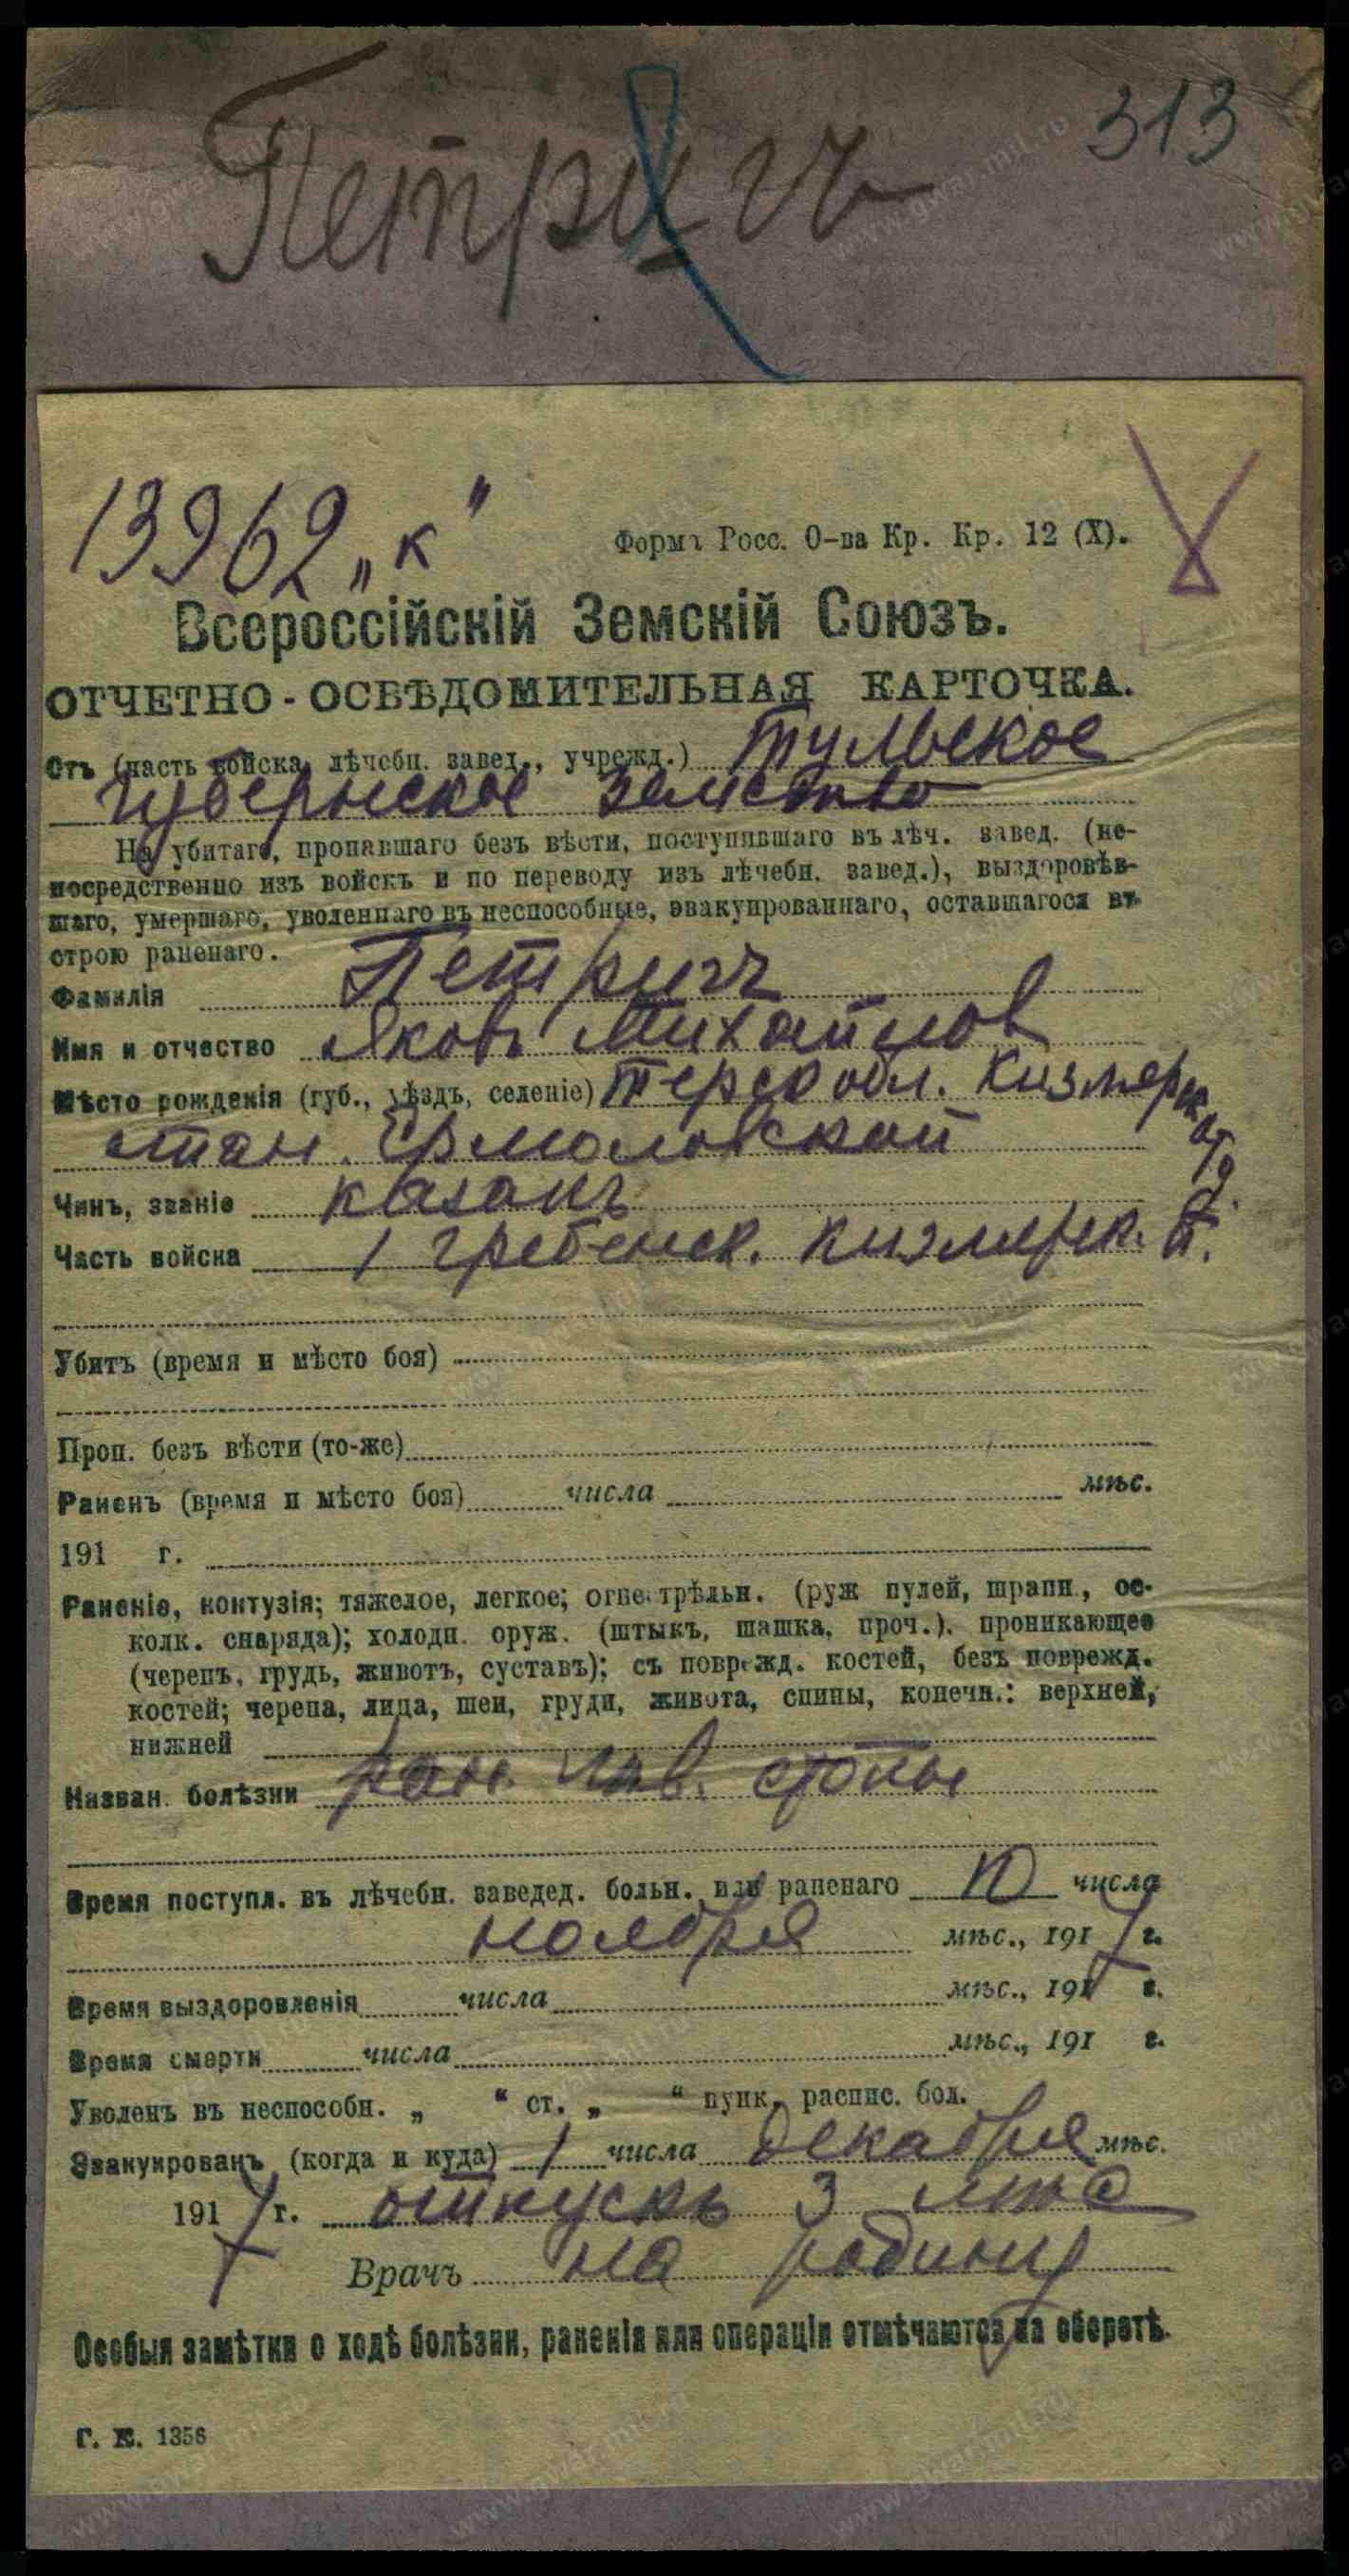 Петричъ
313
13962 „К"
Форма Росс. О-ва Кр. Кр. 12 (X).
Всероссійскій Земскій Союзъ.
ОТЧЕТНО-ОСВѢДОМИТЕЛЬНАЯ КАРТОЧКА.
Отъ (часть войска, лѣчебн. завед., учрежд.) Тульское
Губернское Земство
На убитаго, пропавшаго безъ вѣсти, поступившаго въ лѣч. завед. (не-
посредственно изъ войскъ и по переводу изъ лѣчебн. завед.), выздоровѣв-
шаго, умершаго, уволеннаго въ неспособные, эвакуированнаго, оставшагося въ
строю раненаго.
Фамилія Петричъ
Имя и отчество Яковъ Михайлов
Мѣсто рожденія (губ., уѣздъ, селеніе) Терск обл. Кизлярск от д.
стан. Ермоловской
Чинъ, званіе казакъ
Часть войска 1 гребенск. кизлярск. п.
Убитъ (время и мѣсто боя)
Проп. безъ вѣсти (то-же)
Раненъ (время и мѣсто боя) числа мѣс.
191 г.
Раненіе, контузія; тяжелое, легкое; огнестрѣльн. (руж пулей, шрапн., ос-
колк. снаряда); холодн. оруж. (штыкъ, шашка, проч.). проникающее
(черепъ, грудь, животъ, суставъ); съ поврежд. костей, безъ поврежд.
костей; черепа, лица, шеи, груди, живота, спины, конечн.: верхней,
нижней
Назван. болѣзни ран. лѣв. стопы
Время поступл. въ лѣчебн. заведед. больн. или раненаго 10 числа
ноября мѣс., 1917 г.
Время выздоровленія числа мѣс., 191 г.
Время смерти числа мѣс., 191 г.
Уволенъ въ неспособн. „ “ ст. „ “ пунк. распис. бол.
Эвакуированъ (когда и куда) 1 числа декабря мѣс.
1917 г. отпускъ 3 мѣс
Врачъ на родину
Особыя замѣтки о ходѣ болѣзни, раненія или операціи отмѣчаются на оборотѣ.
Г. К. 1356